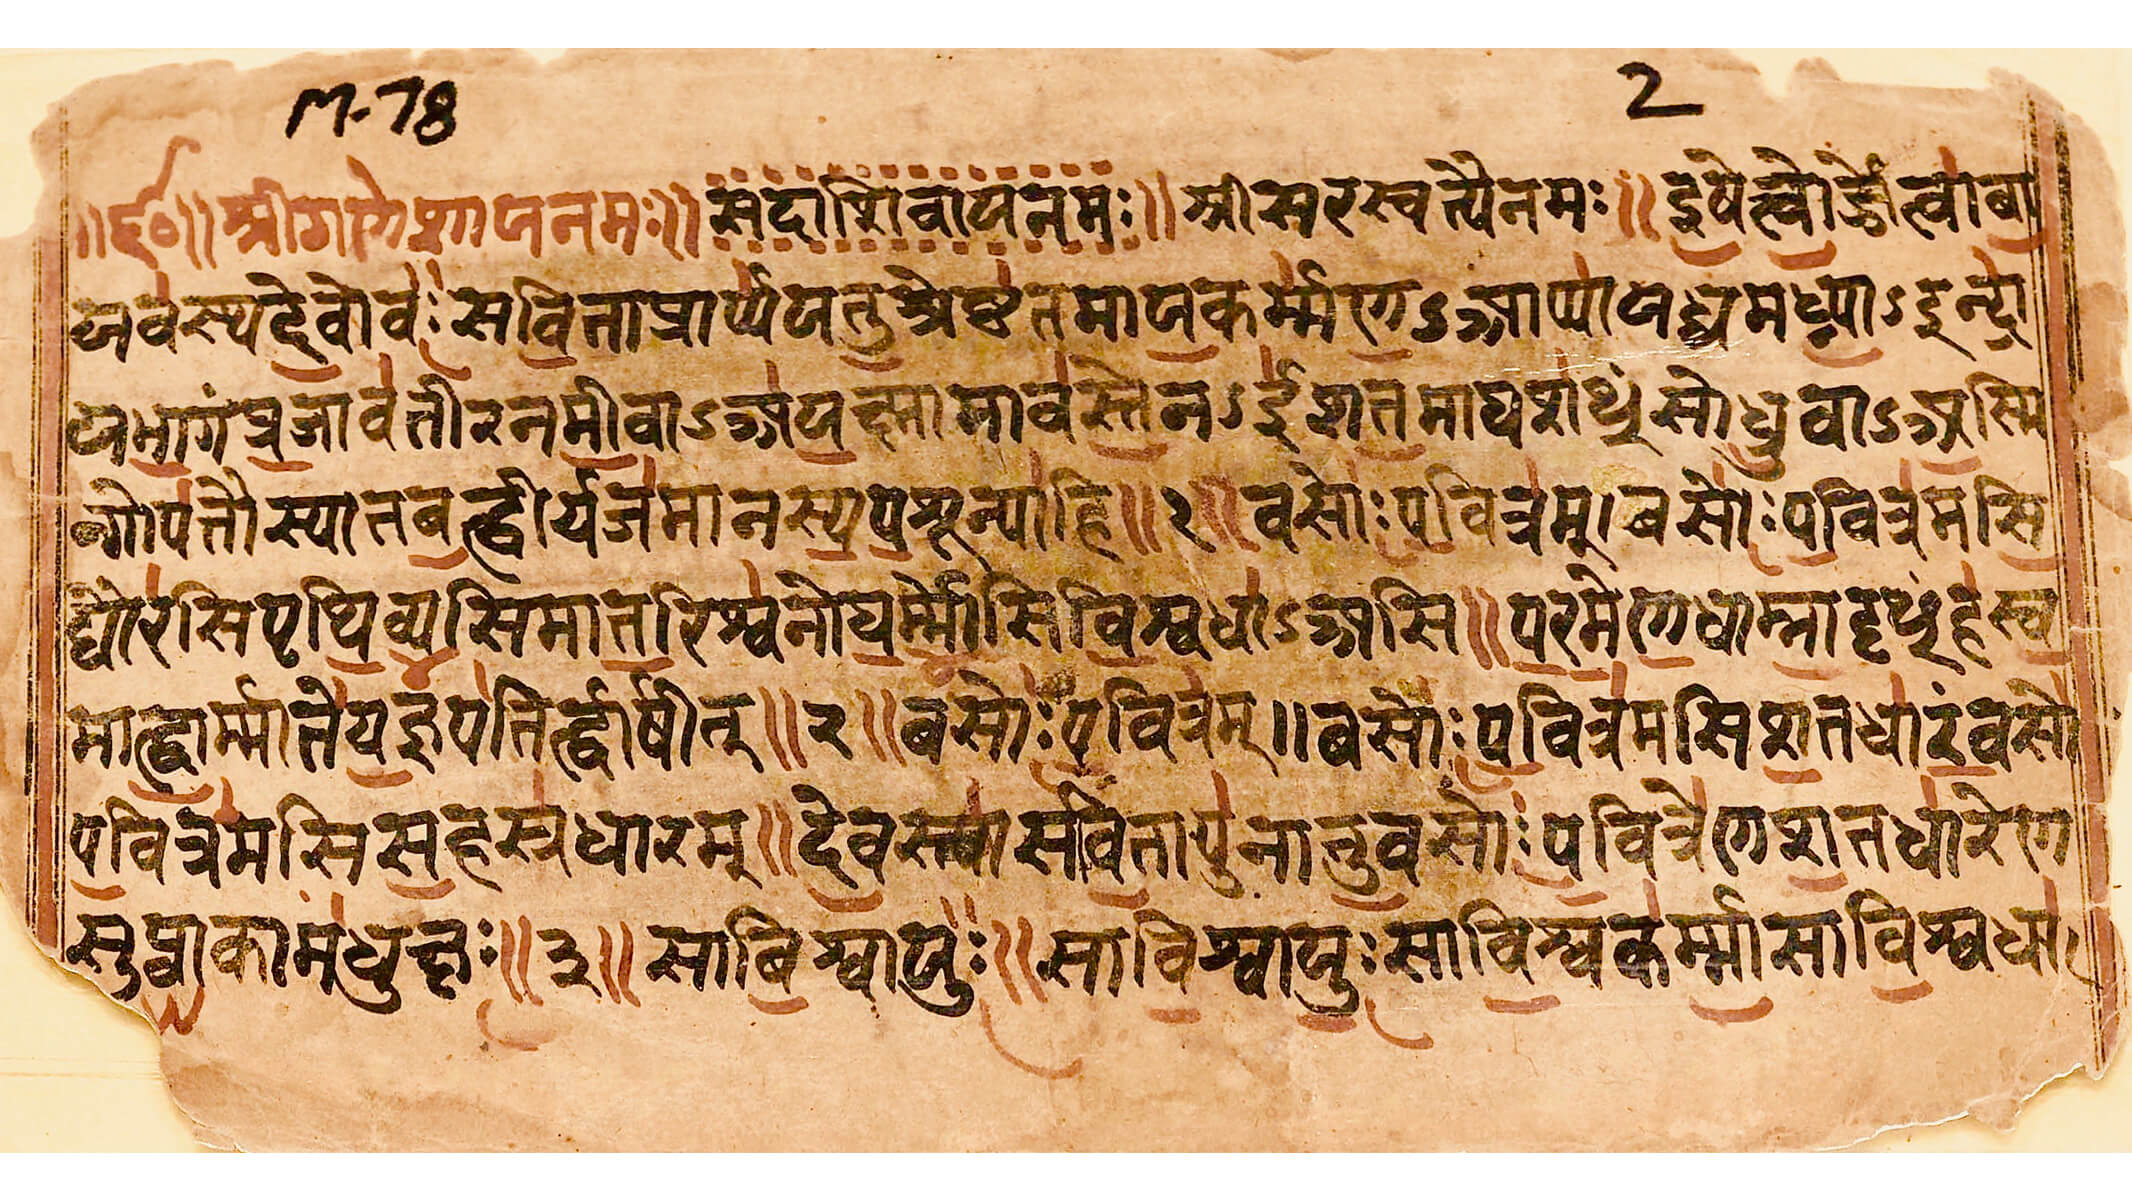 M-78 2
॥ॐ॥ श्रीगणेशाय नमः॥ सदाशिवाय नमः॥ श्रीसरस्वत्यै नमः॥ इ॒षेत्वो॒र्ज्जेत्वा॑वा॒
यव॑स्थदे॒वोवः॑ सवि॒ताप्रार्प्प॑यतु॒श्रेष्ठ॑तमाय॒कर्म्म॑ण॒ऽआप्या॑यध्वमघ्न्या॒ऽइन्द्रा॑
यभा॒गंप्र॒जाव॑तीरनमी॒वाऽअ॑य॒क्ष्मामाव॑स्ते॒नऽई॑शत॒माघश॑ᳪसोध्रु॒वाऽअ॒स्मि
न्गोप॑तौस्यातब॒ह्वीर्यज॑मानस्य॒प॒शून्पा॑हि॥१॥वसोः॑प॒वित्र॑म्।वसोः॑प॒वित्र॑मसि॒
द्यौर॑सिपृथि॒व्य॒सिमा॒त॒रिश्व॑नोघ॒र्म्मो॒सि॒वि॒श्वधा॑ऽअसि॥प॒र॒मेण॒धाम्ना॒दृᳪह॑स्व॒
माह्वा॒र्म्माते॑य॒ज्ञप॑तिर्ह्वार्षीत्॥२॥वसोः॑प॒वित्र॑म्॥वसोः॑प॒वित्र॑मसिश॒तधा॑रं॒वसोः॑
प॒वित्र॑मसिस॒हस्र॑धारम्॥दे॒वस्त्वा॑सवि॒तापु॑नातु॒वसोः॑प॒वित्रे॑णश॒तधा॑रेण
सु॒प्वाकाम॑धुक्षः॥३॥सावि॒श्वायुः॑॥सावि॒श्वायु॒ःसावि॒श्वक॑र्म्मा॒सावि॒श्वधा॑